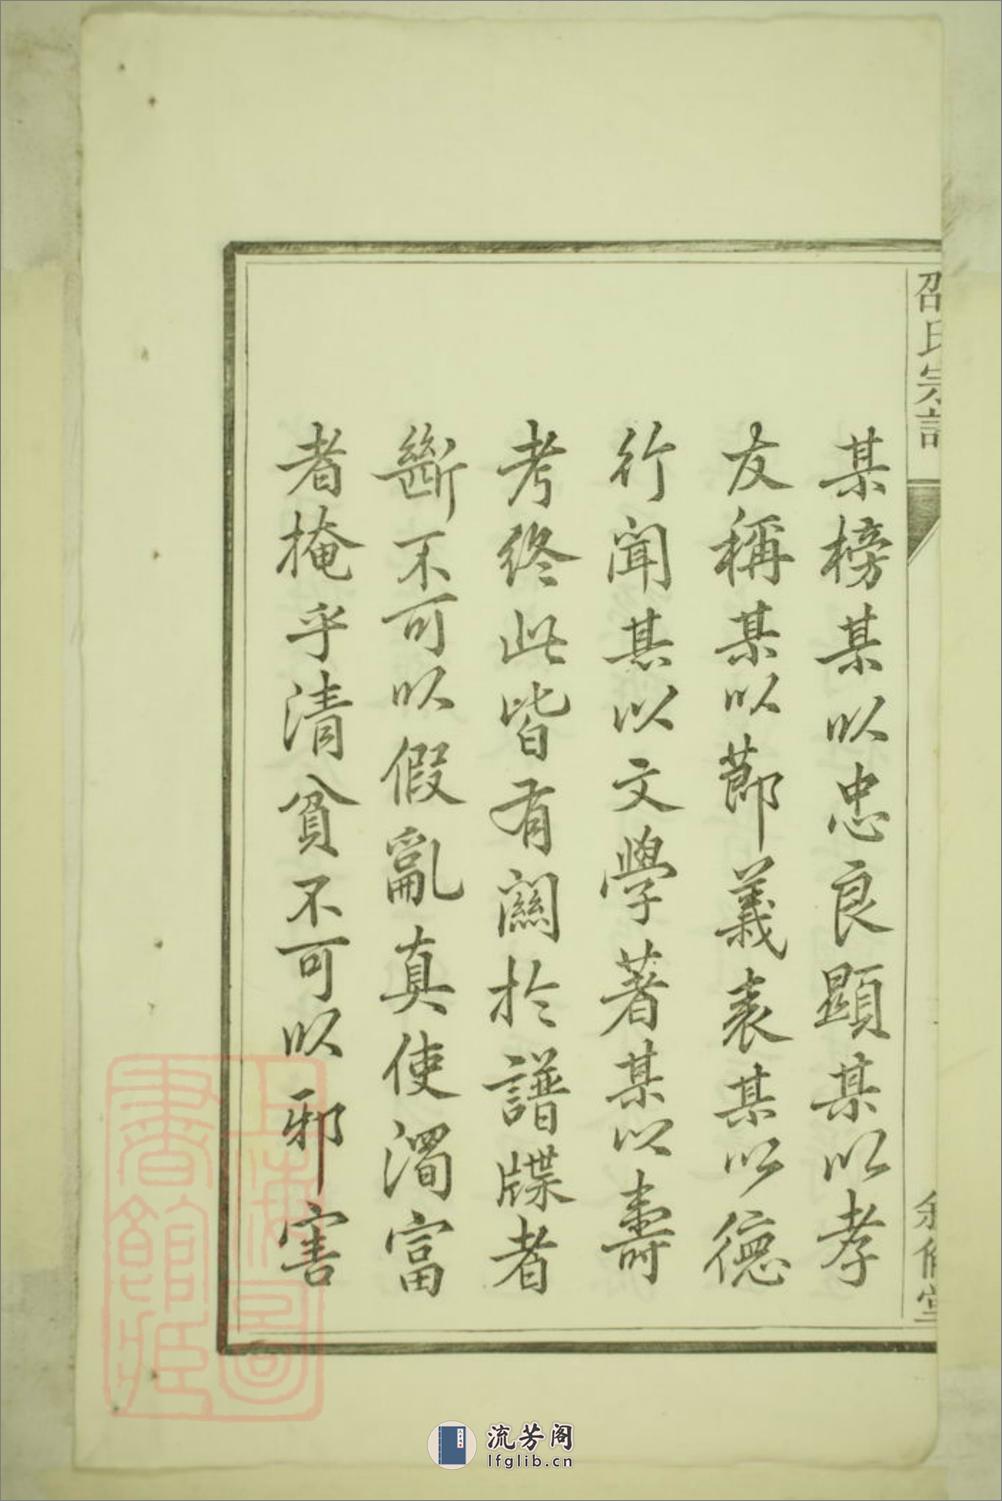 邵氏宗譜
某榜某以忠良顯某以孝
友稱某以節義表某以德
行聞某以文學著某以壽
考終此皆有關於譜牒者
斷不可以假亂真使濁富
者掩乎清貧不可以邪害
上海圖
書館藏
流芳阁
lfglib.cn